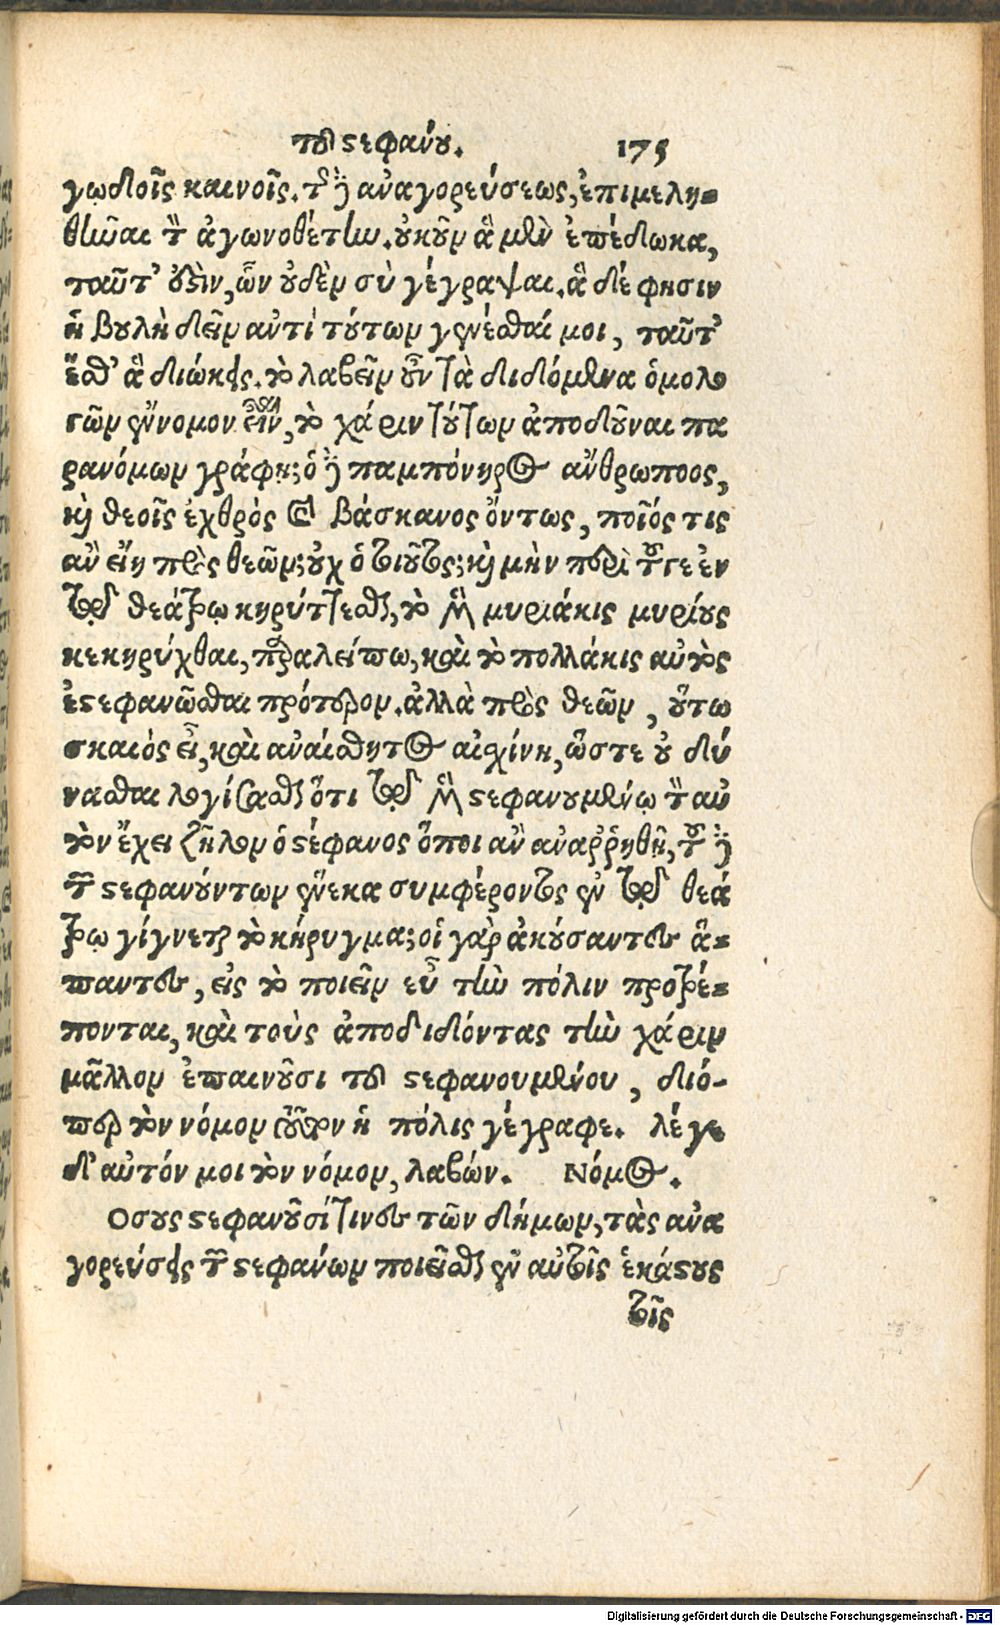 τοῦ στεφάνου. 175
γῳδοῖς καινοῖς. τῆς δὲ ἀναγορεύσεως, ἐπιμελη-
θῆναι τὸν ἀγωνοθέτην. οὐκοῦν ἃ μὲν ἐπέδωκα,
ταῦτ' ἐστὶν, ὧν οὐδὲν σὺ γέγραψαι. ἃ δέ φησιν
ἡ βουλὴ δεῖν αὐτὶ τούτων γενέσθαί μοι, ταῦτ'
ἔσθ' ἃ διώκεις. τὸ λαβεῖν οὖν τὰ διδόμενα ὁμολο
γῶν ἔννομον εἶναι, τὸ χάριν τούτων ἀποδοῦναι πα
ρανόμων γράφῃ; ὁ δὲ παμπόνηρος ἄνθρωποος,
καὶ θεοῖς ἐχθρὸς καὶ βάσκανος ὄντως, ποῖός τις
ἂν εἴη πρὸς θεῶν; οὐχ ὁ τοιοῦτος; καὶ μὴν περὶ τοῦ γε ἐν
τῷ θεάτρῳ κηρύττεσθαι, τὸ μὲν μυριάκις μυρίους
κεκηρύχθαι, παραλείπω, καὶ τὸ πολλάκις αὐτὸς
ἐστεφανῶσθαι πρότερον. ἀλλὰ πρὸς θεῶν, οὕτω
σκαιὸς εἶ, καὶ ἀναίσθητος αἰσχίνη, ὥστε οὐ δύ
νασθαι λογίσασθαι ὅτι τῷ μὲν στεφανουμένῳ τὸν αὐ
τὸν ἔχει ζῆλον ὁ στέφανος ὅποι ἂν ἀναῤῥηθῇ, τοῦ δὲ
τῶν στεφανούντων ἕνεκα συμφέροντος ἐν τῷ θεά
τρῳ γίγνεται τὸ κήρυγμα; οἱ γὰρ ἀκούσαντες ἅ-
παντες, εἰς τὸ ποιεῖν εὖ τὴν πόλιν προτρέ-
πονται, καὶ τοὺς ἀποδιδόντας τὴν χάριν
μᾶλλον ἐπαινοῦσι τοῦ στεφανουμένου, διό-
περ τὸν νόμον τοῦτον ἡ πόλις γέγραφε. λέγε
δ' αὐτόν μοι τὸν νόμον, λαβών. Νόμος.
Οσους στεφανοῦσί τινες τῶν δήμων, τὰς ἀνα
γορεύσεις τῶν στεφάνων ποιεῖσθαι ἐν αὐτοῖς ἑκάστους
τοῖς
Digitalisierung gefördert durch die Deutsche Forschungsgemeinschaft - DFG